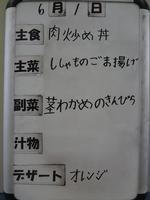 6月1日
主食 肉炒め丼
主菜 ししゃものごま揚げ
副菜 茎わかめのきんぴら
汁物
デザート オレンジ